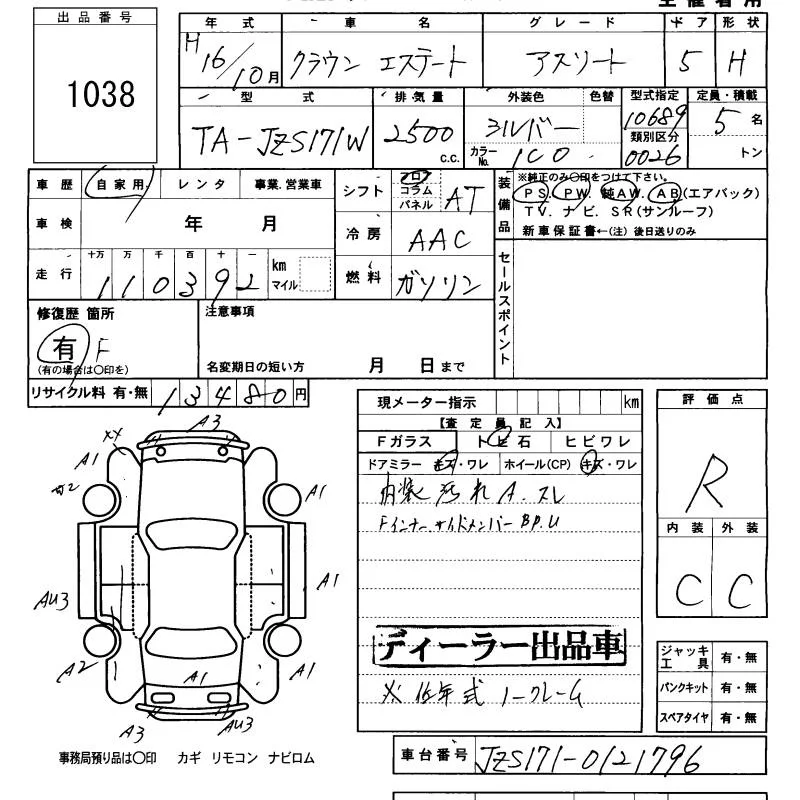 出品番号
1038
年式 車名 グレード ドア 形状
H16/10月 クラウン エステート アスリート 5 H
型式 排気量 外装色 色替 型式指定 定員・積載
TA-JZS171W 2500 c.c. シルバー 10689 5名
カラーNo. 1C0 類別区分 0026 トン
車歴 自家用 レンタ 事業.営業車
シフト フロ コラム パネル AT
装備品 ※純正のみ〇印をつけて下さい。
PS. PW. 純AW. AB(エアバック)
TV. ナビ. SR(サンルーフ)
新車保証書←(注) 後日送りのみ
車検 年 月
冷房 AAC
走行 十万 万 千 百 十 一 km マイル
110392
燃料 ガソリン
セールスポイント
修復歴 箇所
有 F
(有の場合は〇印を)
注意事項
名変期日の短い方 月 日まで
リサイクル料 有・無 13480円
現メーター指示 km
【査定員記入】
Fガラス トビ石 ヒビワレ
ドアミラー キズ・ワレ ホイール(CP) キズ・ワレ
内装 汚れ A. スレ
Fインナー サイドメンバー BP.U
ディーラー出品車
※ 低年式 ノークレーム
評価点
R
内装 外装
C C
ジャッキ工具 有・無
パンクキット 有・無
スペアタイヤ 有・無
A3
XX
A1
A2
A1
AU3
A1
A2
A1
A1
A3
AU3
事務局預り品は〇印 カギ リモコン ナビロム
車台番号 JZS171-0121796